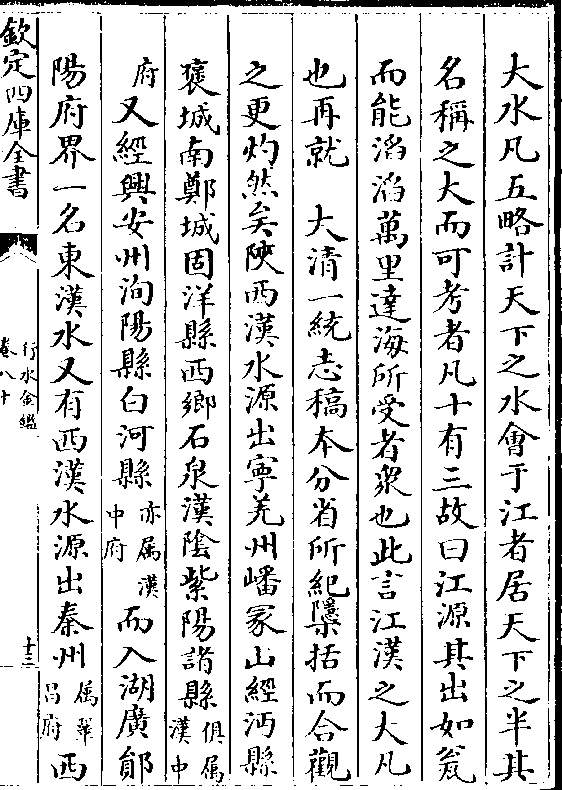 大水凡五略計天下之水會于江者居天下之半其
名稱之大而可考者凡十有三故曰江源其出如瓮
而能滔滔萬里達海所受者衆也此言江漢之大凡
也再就　大清一統志稿本分省所紀隱括而合觀
之更灼然矣陜西漢水源出寧羌州嶓冢山經沔縣
褒城南鄭城固洋縣西鄉石泉漢陰紫陽諸縣俱属漢中
府又經興安州洵陽縣白河縣亦属漢中府而入湖廣鄖
陽府界一名東漢水又有西漢水源出秦州属鞏昌府西
欽定四庫全書
行水金鑑
卷八十
十三